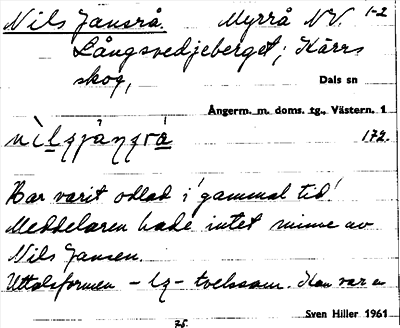 Nils Jansrå. Myrrå NV. 1-2
Långsvedjeberget; Kärrs
skog,
Dals sn
Ångerm. m. doms. tg., Västern. 1
172.
Har varit odlad i 'gammal tid'
Meddelaren hade intet minne av
Nils Jansen.
Uttalsformen - lq - tveksam. Kan vara
Sven Hiller 1961
75.